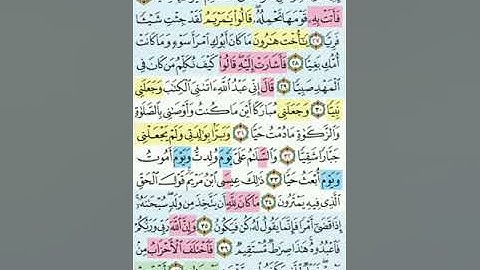 فَأَتَتْ بِهِۦ قَوْمَهَا تَحْمِلُهُۥ ۖ قَالُوا۟ يَـٰمَرْيَمُ لَقَدْ جِئْتِ شَيْـًٔا
فَرِيًّا ٢٧ يَـٰٓأُخْتَ هَـٰرُونَ مَا كَانَ أَبُوكِ ٱمْرَأَ سَوْءٍ وَمَا كَانَتْ
أُمُّكِ بَغِيًّا ٢٨ فَأَشَارَتْ إِلَيْهِ ۖ قَالُوا۟ كَيْفَ نُكَلِّمُ مَن كَانَ فِى
ٱلْمَهْدِ صَبِيًّا ٢٩ قَالَ إِنِّى عَبْدُ ٱللَّهِ ءَاتَىٰنِىَ ٱلْكِتَـٰبَ وَجَعَلَنِى
نَبِيًّا ٣٠ وَجَعَلَنِى مُبَارَكًا أَيْنَ مَا كُنتُ وَأَوْصَـٰنِى بِٱلصَّلَوٰةِ
وَٱلزَّكَوٰةِ مَا دُمْتُ حَيًّا ٣١ وَبَرًّۢا بِوَٰلِدَتِى وَلَمْ يَجْعَلْنِى
جَبَّارًا شَقِيًّا ٣٢ وَٱلسَّلَـٰمُ عَلَىَّ يَوْمَ وُلِدتُّ وَيَوْمَ أَمُوتُ
وَيَوْمَ أُبْعَثُ حَيًّا ٣٣ ذَٰلِكَ عِيسَى ٱبْنُ مَرْيَمَ ۚ قَوْلَ ٱلْحَقِّ
ٱلَّذِى فِيهِ يَمْتَرُونَ ٣٤ مَا كَانَ لِلَّهِ أَن يَتَّخِذَ مِن وَلَدٍ ۖ سُبْحَـٰنَهُۥٓ ۚ
إِذَا قَضَىٰٓ أَمْرًا فَإِنَّمَا يَقُولُ لَهُۥ كُن فَيَكُونُ ٣٥ وَإِنَّ ٱللَّهَ رَبِّى وَرَبُّكُمْ
فَٱعْبُدُوهُ ۚ هَـٰذَا صِرَٰطٌ مُّسْتَقِيمٌ ٣٦ فَٱخْتَلَفَ ٱلْأَحْزَابُ مِنۢ